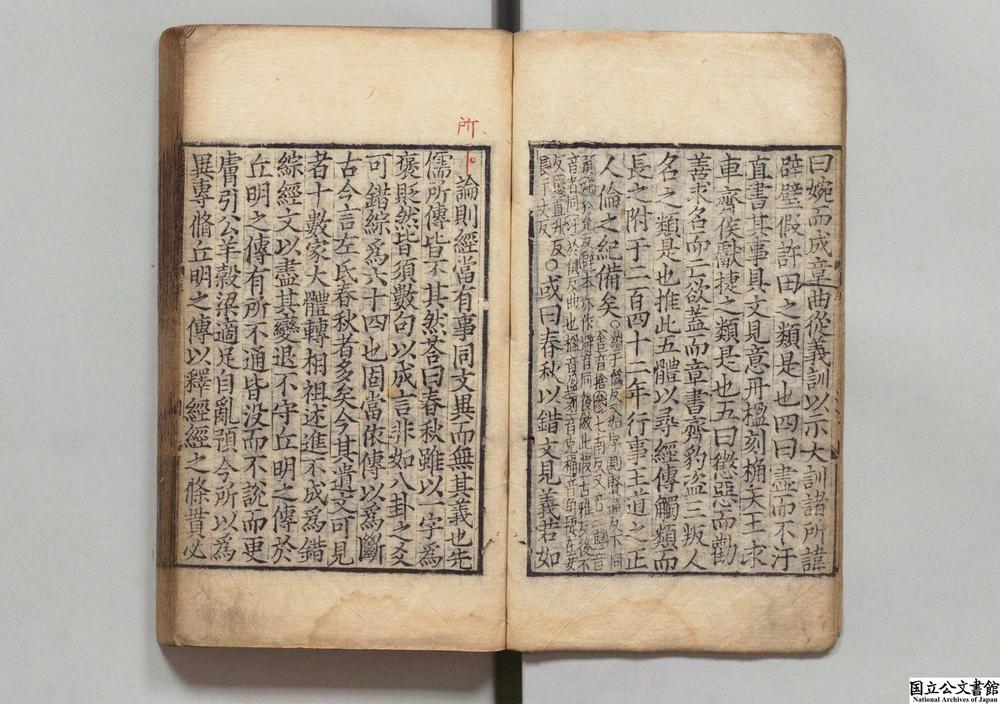 曰婉而成章曲從義訓以示大訓諸所諱
辟璧假許田之類是也四曰盡而不汙
直書其事具文見意丹楹刻桷天王求
車齊侯獻捷之類是也五曰懲惡而勸
善求名而亡欲蓋而章書齊豹盜三叛人
名之類是也推此五體以尋經傳觸類而
長之附于二百四十二年行事王道之正
人倫之紀備矣○
長丁丈反○或曰春秋以錯文見義若如
所
論則經當有事同文異而無其義也先
儒所傳皆不其然荅曰春秋雖以一字為
褒貶然皆須數句以成言非如八卦之爻
可錯綜為六十四也固當依傳以為斷
古今言左氏春秋者多矣今其遺文可見
者十數家大體轉相祖述進不成為錯
綜經文以盡其變退不守丘明之傳於
丘明之傳有所不通皆没而不說而更
膚引公羊穀梁適足自亂預今所以為
異專脩丘明之傳以釋經經之條貫必
国立公文書館
National Archives of Japan